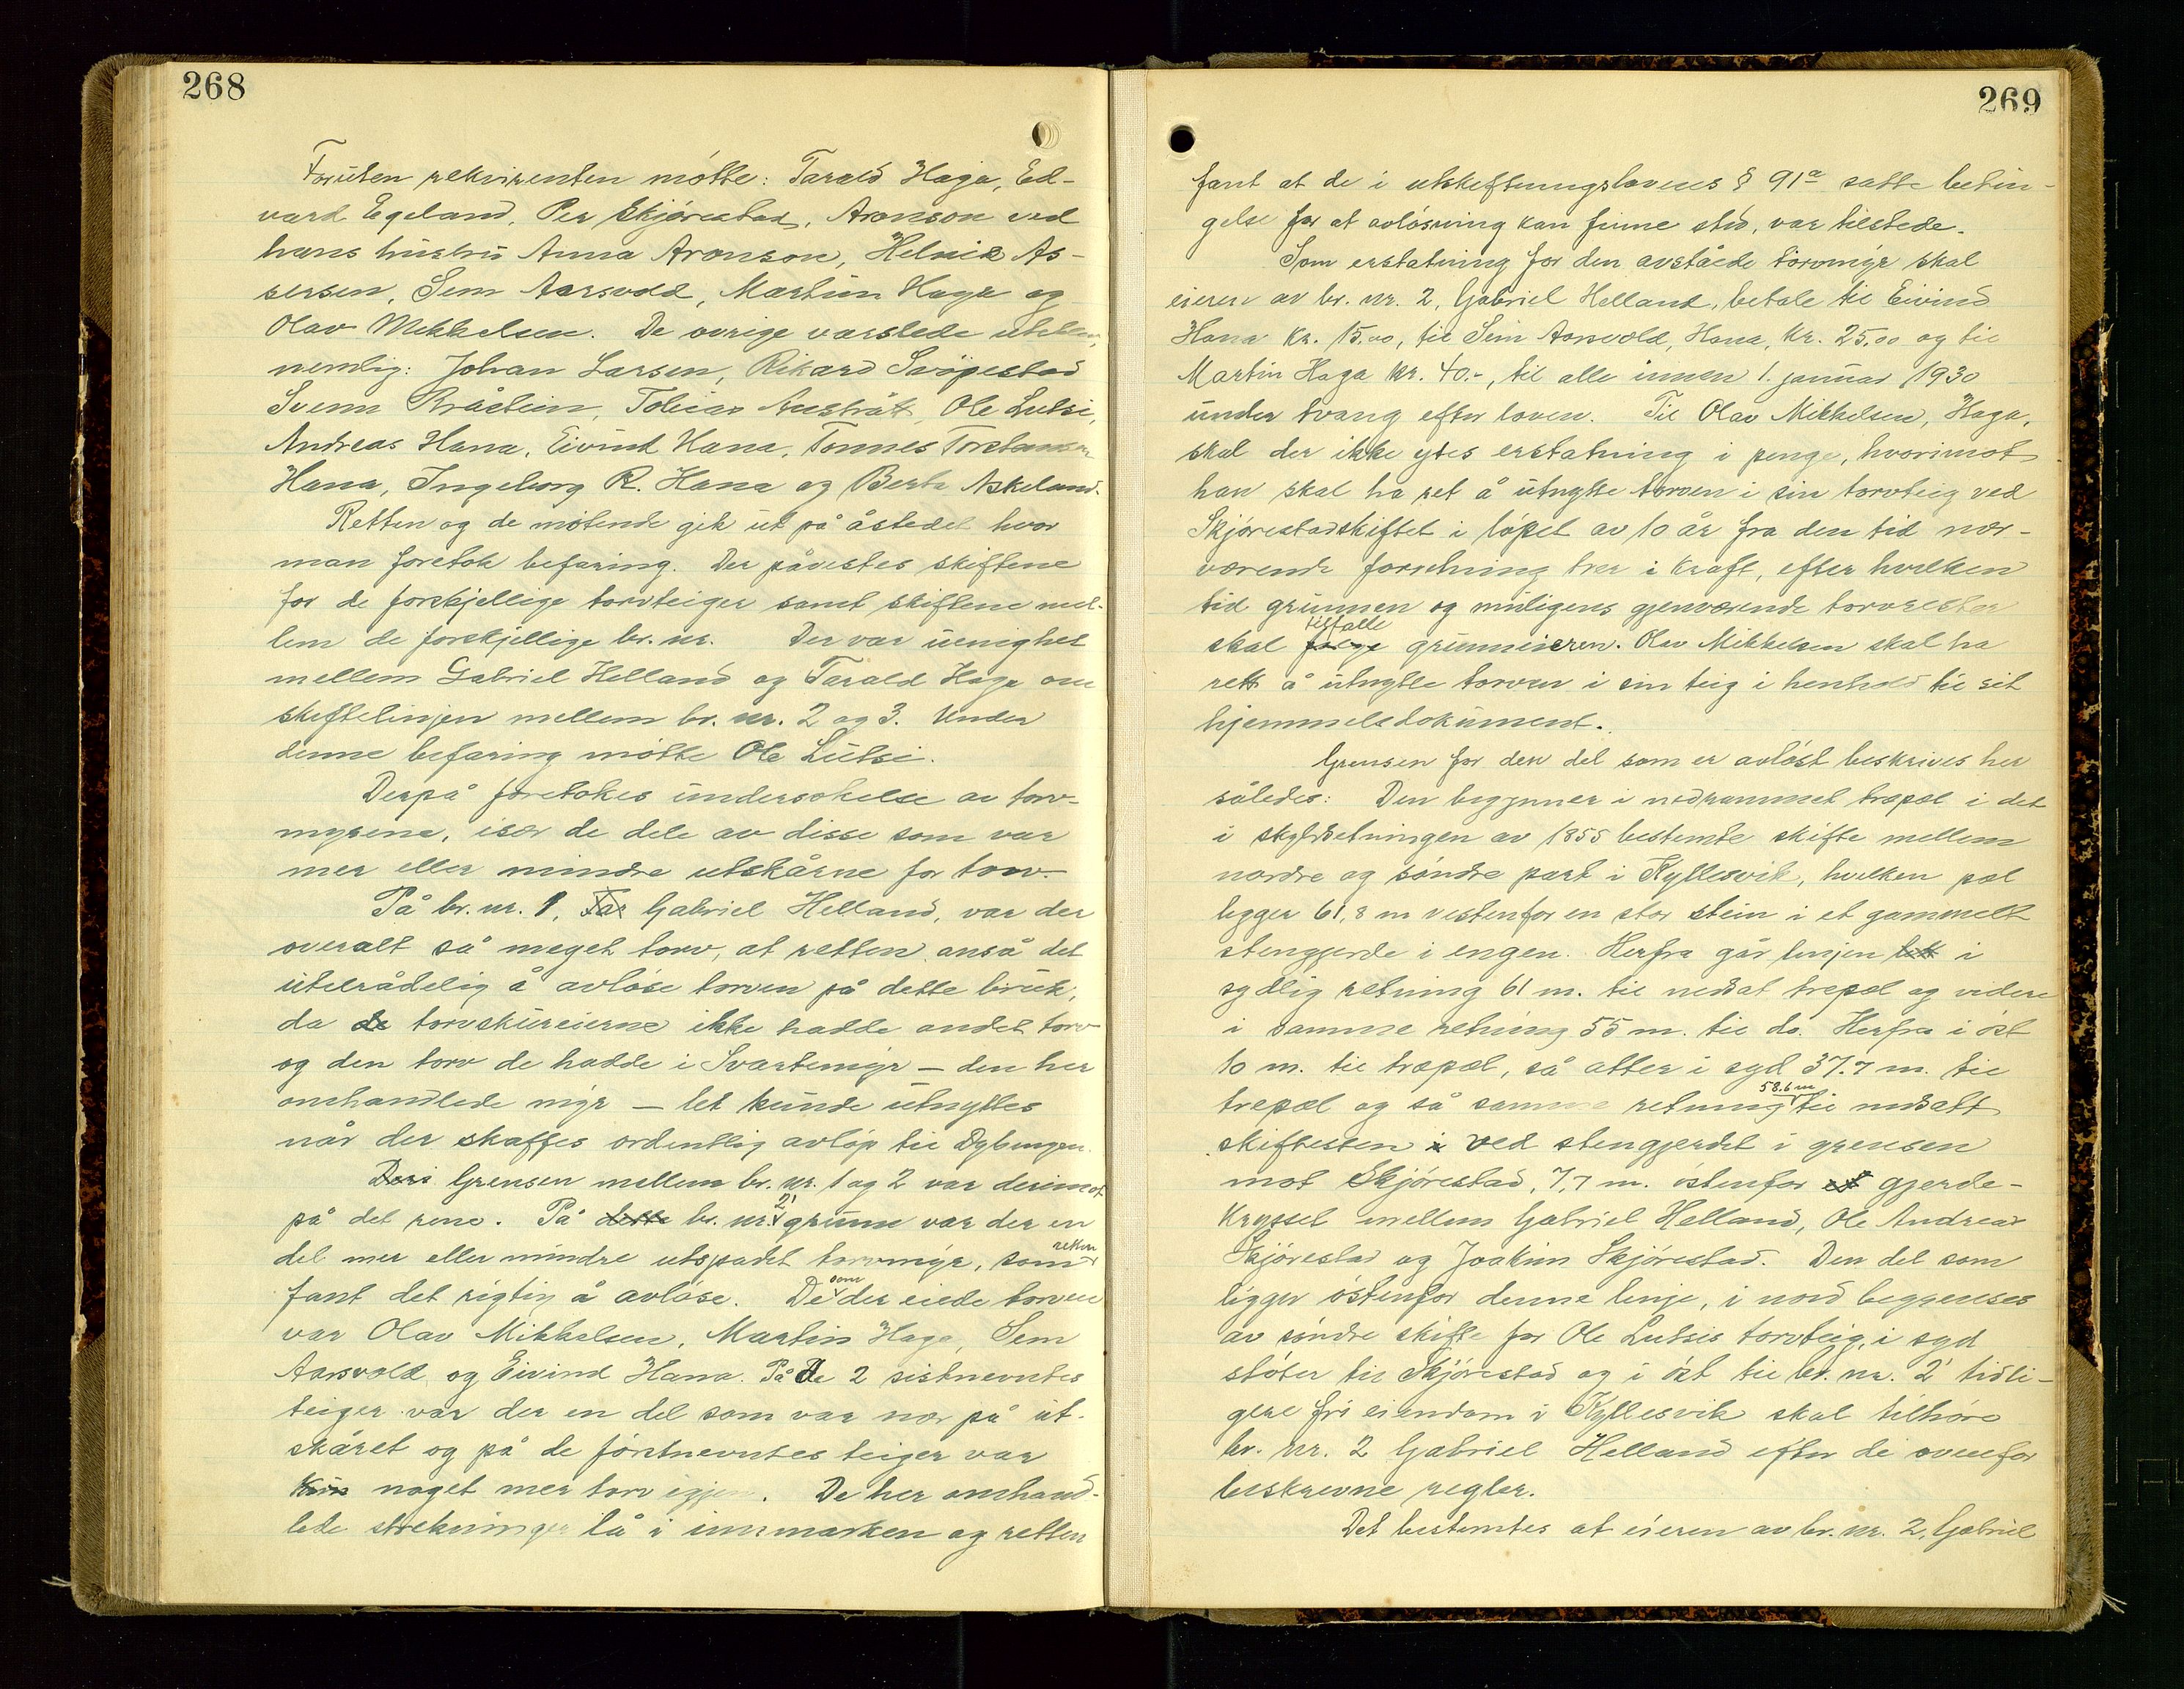 268
Foruten rekvirenten møtte: Tarald Haga, Ed-
vard Egeland, Per Skjørestad, Aronson ved
hans hustru Anna Aronson, Helmik As-
sersen, Sem Aarsvold, Martin Haga og
Olav Mikkelsen. De øvrige varslede uteblev,
nemlig: Johan Larsen, Rikard Svøpestad
Svenn Kråstein, Tobias Austråt, Ole Lutsi,
Andreas Hana, Eivind Hana, Tønnes Torstensen
Hana, Ingeborg R. Hana og Berta Askeland.
Retten og de møtende gik ut på åstedet hvor
man foretok befaring. Der påvistes skiftene
for de forskjellige torvteiger samt skiftene mel-
lem de forskjellige br. nr. Der var uenighet
mellem Gabriel Helland og Tarald Haga om
skiftelinjen mellem br. nr. 2 og 3. Under
denne befaring møtte Ole Lutsi.
Derpå foretokes undersøkelse av torv-
myrene, især de dele av disse som var
mer eller mindre utskårne for torv.
På br. nr. 1, Tar Gabriel Helland, var der
overalt så meget torv, at retten anså det
utilrådelig å avløse torven på dette bruk,
da de torvskureierne ikke hadde andet torv
og den torv de hadde i Svartemyr – den her
omhandlede myr – let kunde utnyttes
når der skaffes ordentlig avløp til Dybingen.
Deri Grensen mellem br. nr. 1 og 2 var derimot
på det rene. På dette br. nr. 2' grunn var der en
del mer eller mindre utspadet torvmyr, som retten
fant det rigtig å avløse. De som der eiede torven
var Olav Mikkelsen, Martin Haga, Sem
Aarsvold og Eivind Hana. På de 2 sistnevntes
teiger var der en del som var nær på ut-
skåret og på de førstnevntes teiger var
kun noget mer torv igjen. De her omhand-
lede strekninger lå i innmarken og retten
269
fant at de i utskiftningslovens § 91a satte betin-
gelse for at avløsning kan finne sted, var tilstede.
Som erstatning for den avståede torvmyr skal
eieren av br. nr. 2, Gabriel Helland, betale til Eivind
Hana kr. 15.00, til Sem Aarsvold, Hana, kr. 25.00 og til
Martin Haga kr. 40.-, til alle innen 1. januar 1930
under tvang efter loven. Til Olav Mikkelsen, Haga,
skal der ikke ytes erstatning i penge, hvorimot
han skal ha ret å utnytte torven i sin torvteig ved
Skjørestadskiftet i løpet av 10 år fra den tid nær-
værende forretning trer i kraft, efter hvilken
tid grunnen og muligens gjenværende torvrester
skal følge tilfalle grunneieren. Olav Mikkelsen skal ha
rett å utnytte torven i sin teig i henhold til sit
hjemmelsdokument.
Grensen for den del som er avløst beskrives her
således: Den begynner i nedrammet træpæl i det
i skyldsetningen av 1855 bestemte skifte mellem
nordre og søndre part i Kyllesvik, hvilken pæl
ligger 61,8 m vestenfor en stor stein i et gammelt
stengjerde i engen. Herfra går linjen i
sydlig retning 61 m. til nedsat trepæl og videre
i samme retning 55 m. til do. Herfra i øst
10 m. til træpæl, så atter i syd 37.7 m. til
trepæl og så samme retning 58.6 m til nedsatt
skiftesten i ved stengjerdet i grensen
mot Skjørestad, 7,7 m. østenfor et gjerde-
krysset mellem Gabriel Helland, Ole Andreas
Skjørestad og Joakim Skjørestad. Den del som
ligger østenfor denne linje, i nord begrenses
av søndre skifte for Ole Lutsis torvteig, i syd
støter til Skjørestad og i øst til br. nr. 2' tidli-
gere fri eiendom i Kyllesvik skal tilhøre
br. nr. 2 Gabriel Helland efter de ovenfor
beskrevne regler.
Det bestemtes at eieren av br. nr. 2, Gabriel